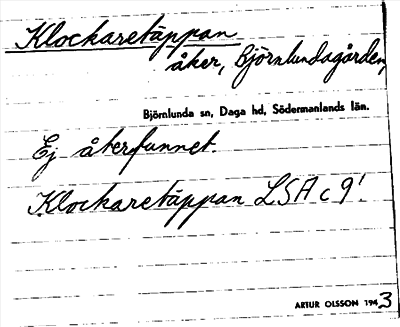 Klockaretäppan
åker, Björnlundagården,
Björnlunda sn, Daga hd, Södermanlands län.
Ej återfunnet.
Klockaretäppan LSA c 9!
ARTUR OLSSON 1943